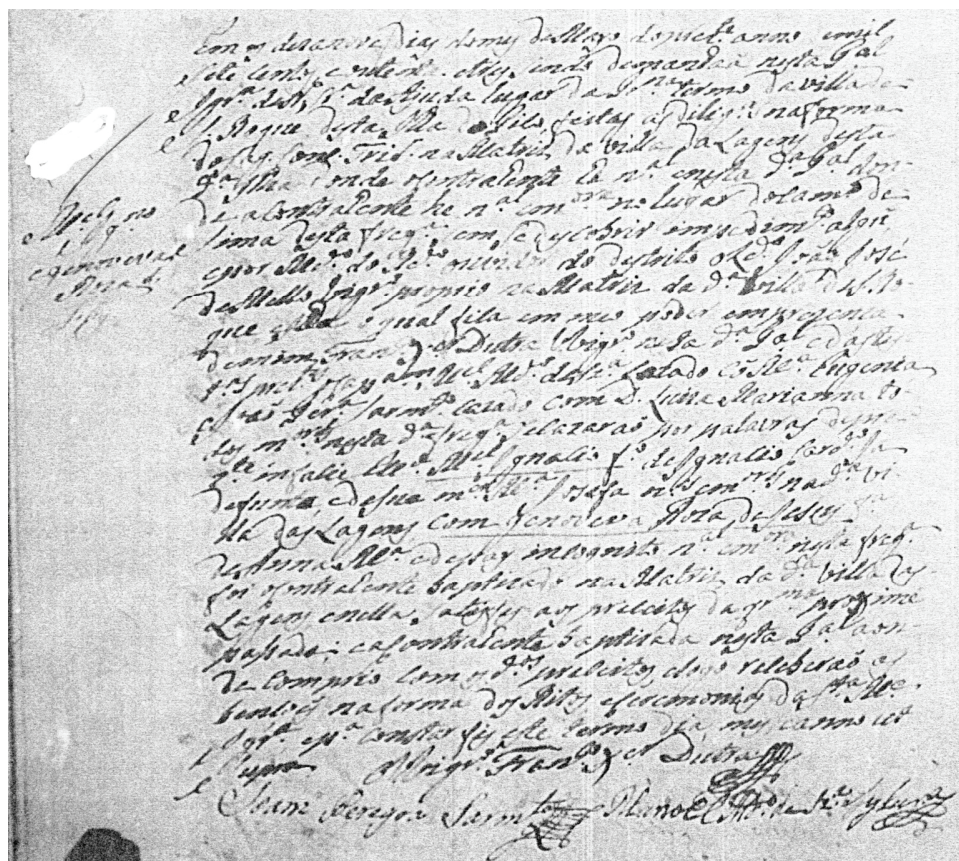 Em os dezanove dias do mes de Mayo do prezte. anno e mil
sete centos e outenta e tres, indo demandaã nesta Parl.
Igra. de N. Sra. da Ajuda lugar da termo da villa de
S. Roque desta Ilha do Pico, feitas as deligas. na forma
do Sag. Conc. Trid. na Matriz da villa da Lagens desta
da. Ilha onde o contraente he nal. e nesta da. Parl. don-
de a contraente he nal. e mora. no lugar do camo. de
sima desta fregra. sem se descobrir impedimto. algũ,
e por Mdo. do Rdo. ouvidor do destrito o Rdo. João José
de Mello Vigro. proprio na Matriz da da. villa de S. Ro-
que o qual fica em meu poder em prezença
de mim Franco. Xer. Dutra Vigro. nesta da. Parl. e das tes-
tas. prezes. Mel. cazado co Ma. Eugenia
e Joam Pera. Sarmto. cazado com D. Luiza Marianna to-
dos mres. nesta da. fregra. se cazaraõ por palavras de prez-
te. in facie Eccle. Mel. Ignacio fo. de Ignacio Cardozo ja
defunto, e de sua mer. Ma. Josefa nes. e mres. na da. vi-
lla das Lagens com Genoveva Roza de Jesus fa.
de Anna Ma. e de pay incognito nal. e mora. nesta fregra.
foi o contraente baptizado na Matriz da da. villa das
Lagens e nella satisfes aos preceitos da qrma. proxime
passada; e a contraente baptizada nesta Parl. aon-
de comprio com os dos. preceitos, e logo receberaõ as
bençois na forma dos Ritos e ceremonias da Sta. Me.
Igra. e pa. constar fis este termo dia, mes, e anno ut
supra O Vigro. Franco. Xer. Dutra
Joam Pereyra Sarmto. Manoel
Mel. Igno.
e Genoveva
Roza de